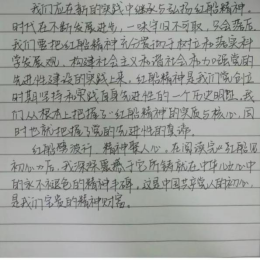 我们应在新的实践中继承与弘扬红船精神,
时代在不断发展进步,一味守旧不可取,只会落后,
我们要把红船精神充分贯彻于树立和落实科
学发展观,构建社会主义和谐社会和加强党的
先进性建设的实践上来,红船精神是我们党各个
时期坚持和实践自身先进性的一个历史明鉴,我
们从根源上把握了红船精神的实质与核心,同
时也就把握了党的先进性的真谛。
红船劈波行,精神聚人心,在阅读完《红船
初心》后,我深深震撼于它所铸就在中华儿女心中
的永不褪色的精神丰碑,这是中国共产党人的初心,
是我们宝贵的精神财富。